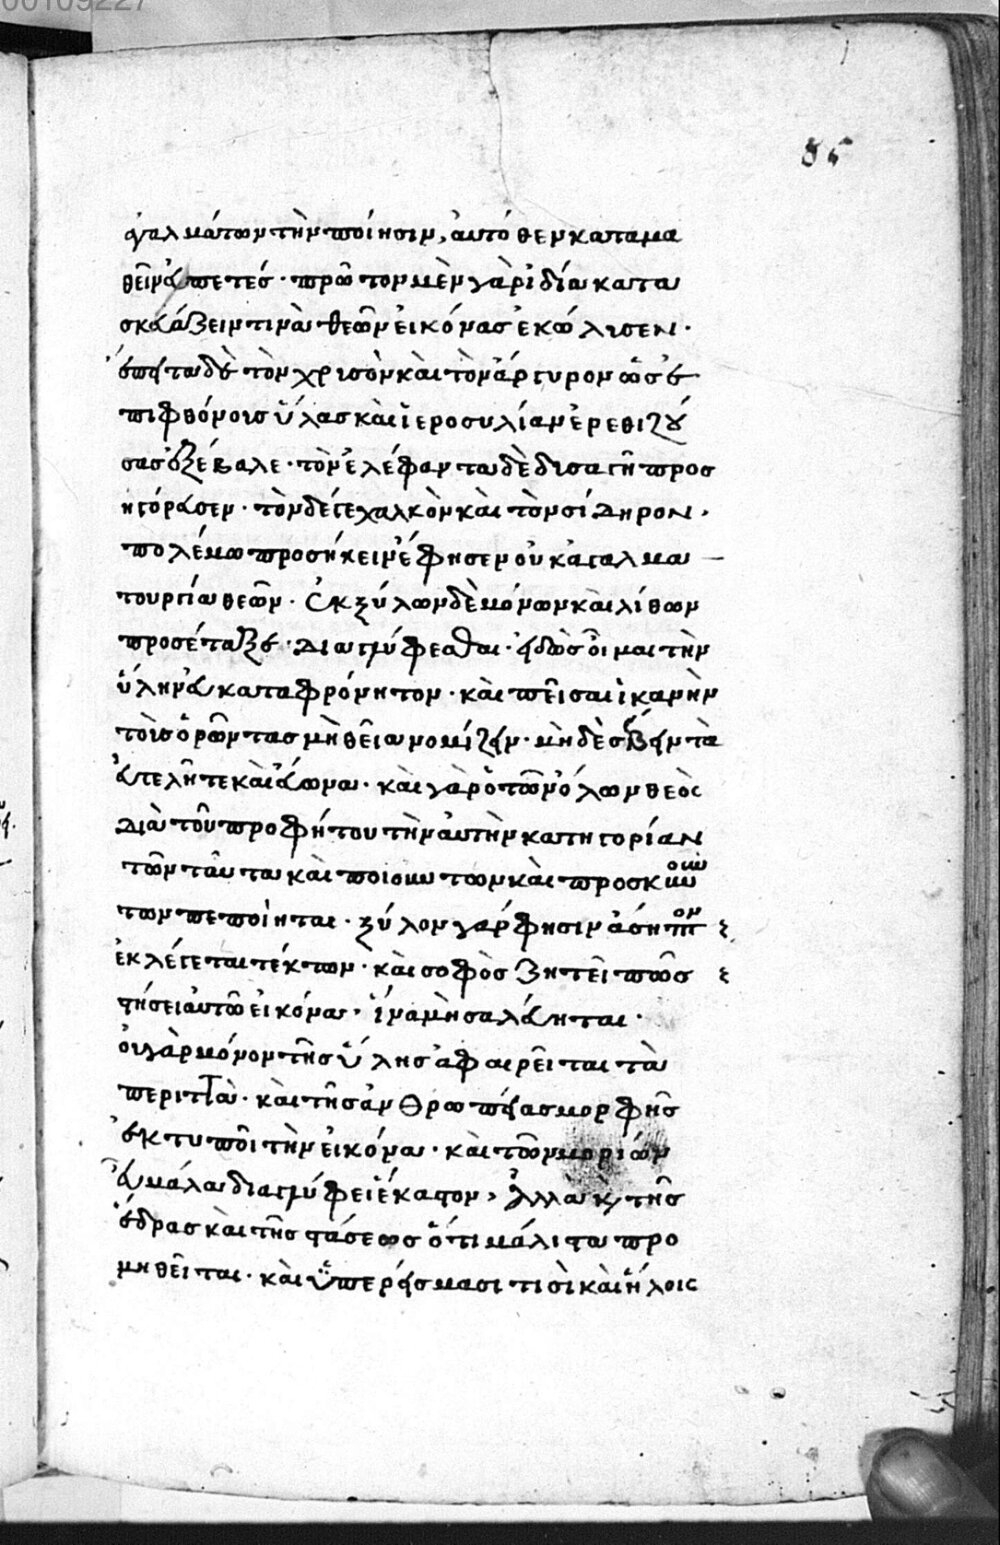 00109227
85
γαλμάτων τὴν ποίησιν, αὐτόθεν καταμα
θεῖν ἅπετές· πρῶτον μὲν γὰρ ἰδία κατα
σκευάζειν τινὰ θεῶν εἰκόνας ἐκώλυσεν·
ἔπειτα δὲ τὸν χρυσὸν καὶ τὸν ἄργυρον ὡς ἐ
πιφθόνοις ὕλας καὶ ἱεροσυλίαν ἐρεθιζού
σας ἐξέβαλε· τὸν ἐλέφαντα δὲ δισαγῆ προσ
ηγόρευσεν· τὸν δέ γε χαλκὸν καὶ τὸν σίδηρον,
πολέμω προσήκειν ἔφησεν οὐκ ἀγαλμα
τουργία θεῶν· ἐκ ξύλων δὲ μόνων καὶ λίθων
προσέταξε· διαγλύφεσθαι· εἰδὼς οἶμαι τὴν
ὕλην εὐκαταφρόνητον· καὶ πεῖσαι ἱκανὴν
τοῖς ὁρῶντας μὴ θεῖα νομίζειν· μὴ δὲ σέβειν τὰ
εὐτελῆ τε καὶ εὔωνα· καὶ γὰρ ὁ τῶν ὅλων θεὸς
διὰ τοῦ προφήτου τὴν αὐτὴν κατηγορίαν
τῶν ταῦτα καὶ ποιούντων καὶ προσκυνού
των πεποίηται· ξύλον γάρ φησιν ἄσηπτον
ἐκλέγεται τέκτων· καὶ σοφὸς ζητεῖ πῶς
στήσει αὐτῶ εἰκόνα· ἵνα μὴ σαλεύηται·
οὐ γὰρ μόνον τῆς ὕλης ἀφαιρεῖται τὰ
περιττὰ· καὶ τῆς ἀνθρωπείας μορφῆς
ἐκτυποῖ τὴν εἰκόνα· καὶ τῶν μορίων
εὖ μάλα διαγλύφει ἕκαστον, ἀλλὰ κ τῆς
ἕδρας καὶ τῆς στάσεως ὅτι μάλιστα προ
μηθεῖται· καὶ ὑπερείσμασι τισὶ καὶ ἥλοις